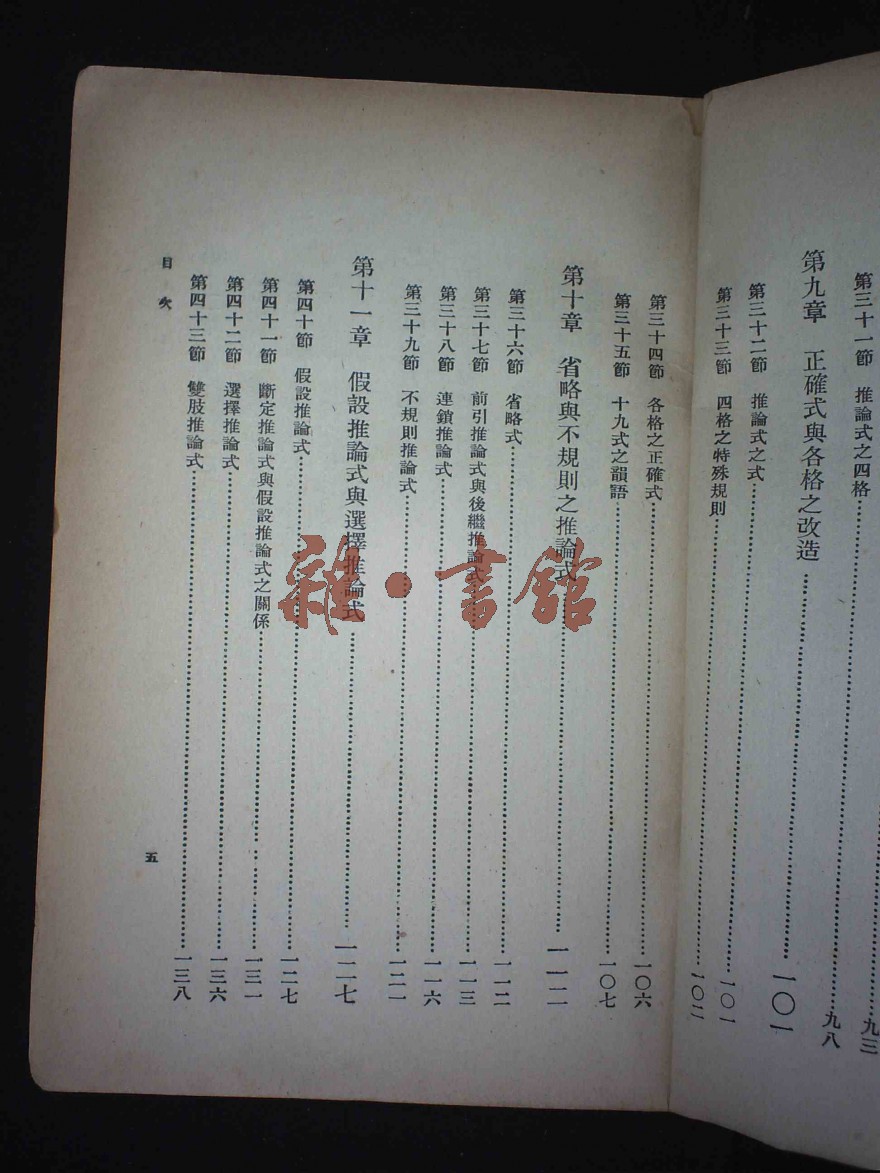 九三
第三十一節 推論式之四格……九八
第九章 正確式與各格之改造……一〇一
第三十二節 推論式之式……一〇一
第三十三節 四格之特殊規則……一〇二
第三十四節 各格之正確式……一〇六
第三十五節 十九式之韻語……一〇七
第十章 省略與不規則之推論式……一一二
第三十六節 省略式……一一二
第三十七節 前引推論式與後繼推論式……一一三
第三十八節 連鎖推論式……一一六
第三十九節 不規則推論式……一二一
第十一章 假設推論式與選擇推論式……一二七
第四十節 假設推論式……一二七
第四十一節 斷定推論式與假設推論式之關係……一三一
第四十二節 選擇推論式……一三六
第四十三節 雙肢推論式……一三八
目次 五
雜·書館